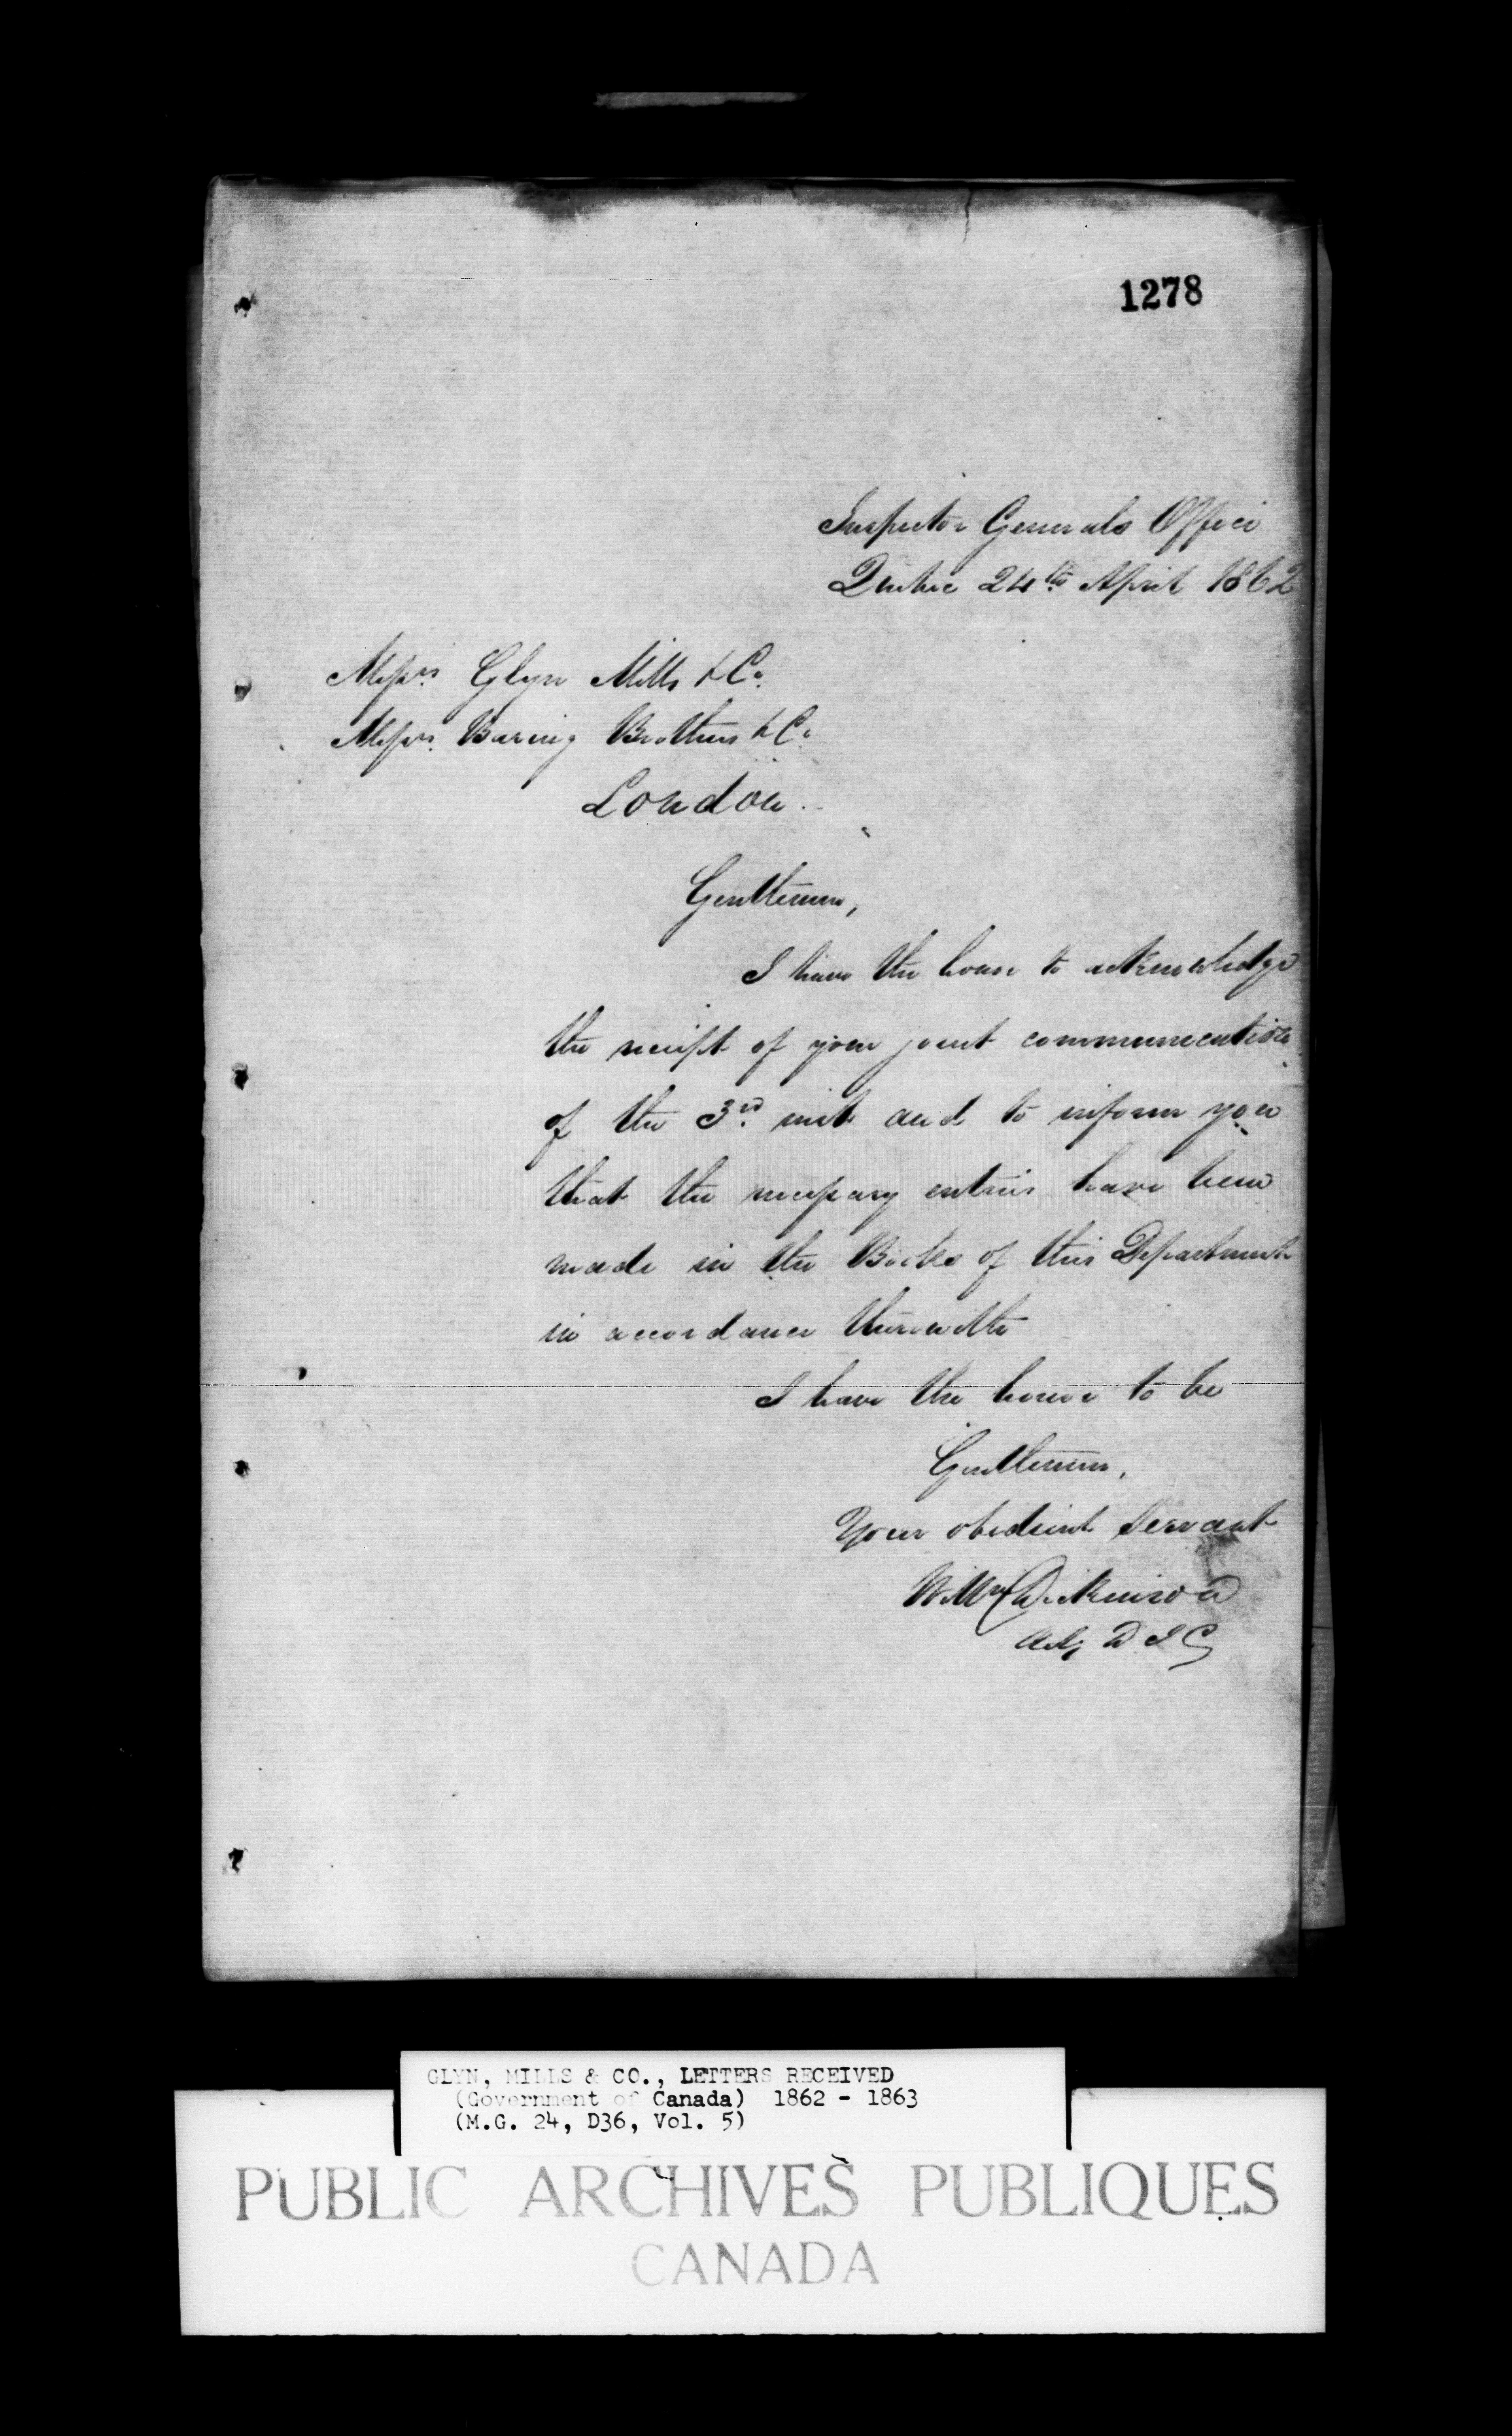 1278
Inspector Generals Office
Quebec 24th April 1862
Messrs Glyn Mills & Co.
Messrs Baring Brothers & Co
London
Gentlemen,
I have the honor to acknowledge
the receipt of your joint communication
of the 3rd inst and to inform you
that the necessary entries have been
made in the Books of this Department
in accordance therewith
I have the honor to be
Gentlemen,
Your obedient Servant
Wm Dickinson
Actg D I G
GLYN, MILLS & CO., LETTERS RECEIVED
(Government of Canada) 1862 - 1863
(M.G. 24, D36, Vol. 5)
PUBLIC ARCHIVES PUBLIQUES
CANADA